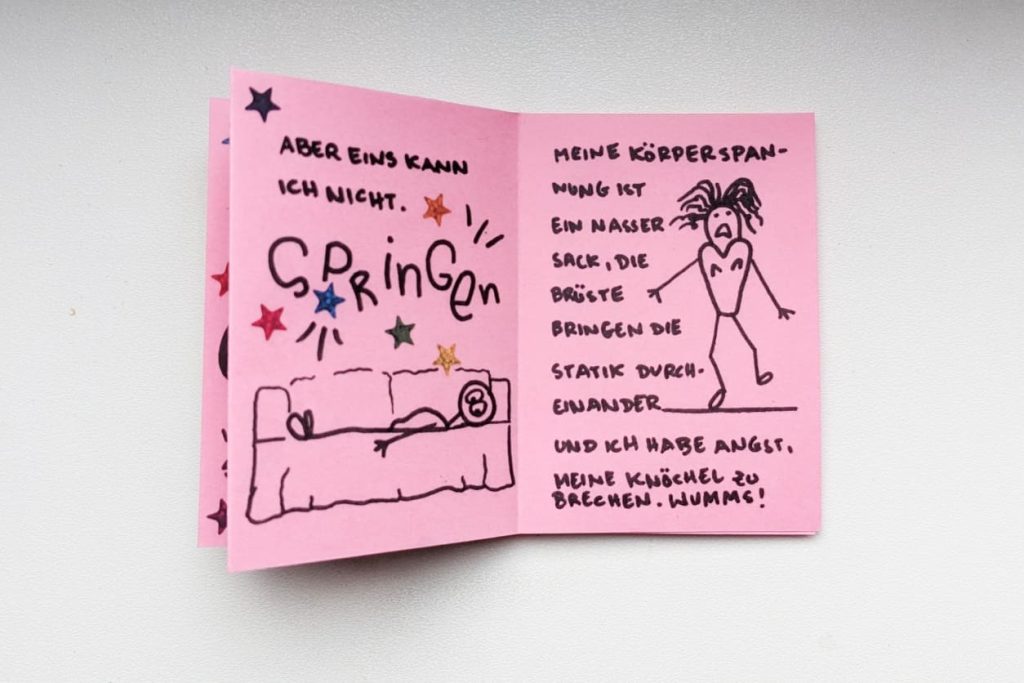 ABER EINS KANN
ICH NICHT.
SPRinGen
MEINE KÖRPERSPAN-
NUNG IST
EIN NASSER
SACK, DIE
BRÜSTE
BRINGEN DIE
STATIK DURCH-
EINANDER
UND ICH HABE ANGST,
MEINE KNÖCHEL ZU
BRECHEN. WUMMS!